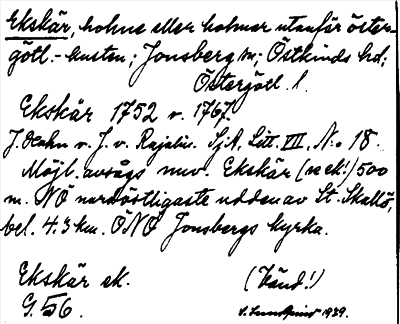 Ekskär, holme eller holmar utanför öster-
götl.-kusten; Jonsberg sn; Östkinds hd;
Östergötl. l.
Ekskär 1752 v. 1767.
J. Hahn v. J. v. Rajalin. Sj.A. Litt. VII. N:o 18.
Möjl. avsågs nuv. Ekskär (se ek!) 500
m. NÖ nordöstligaste udden av St. Skallö,
bel. 4.3 km. ÖNÖ Jonsbergs kyrka.
Ekskär ek. (Vänd!)
G 56. S. Lundqvist 1939.